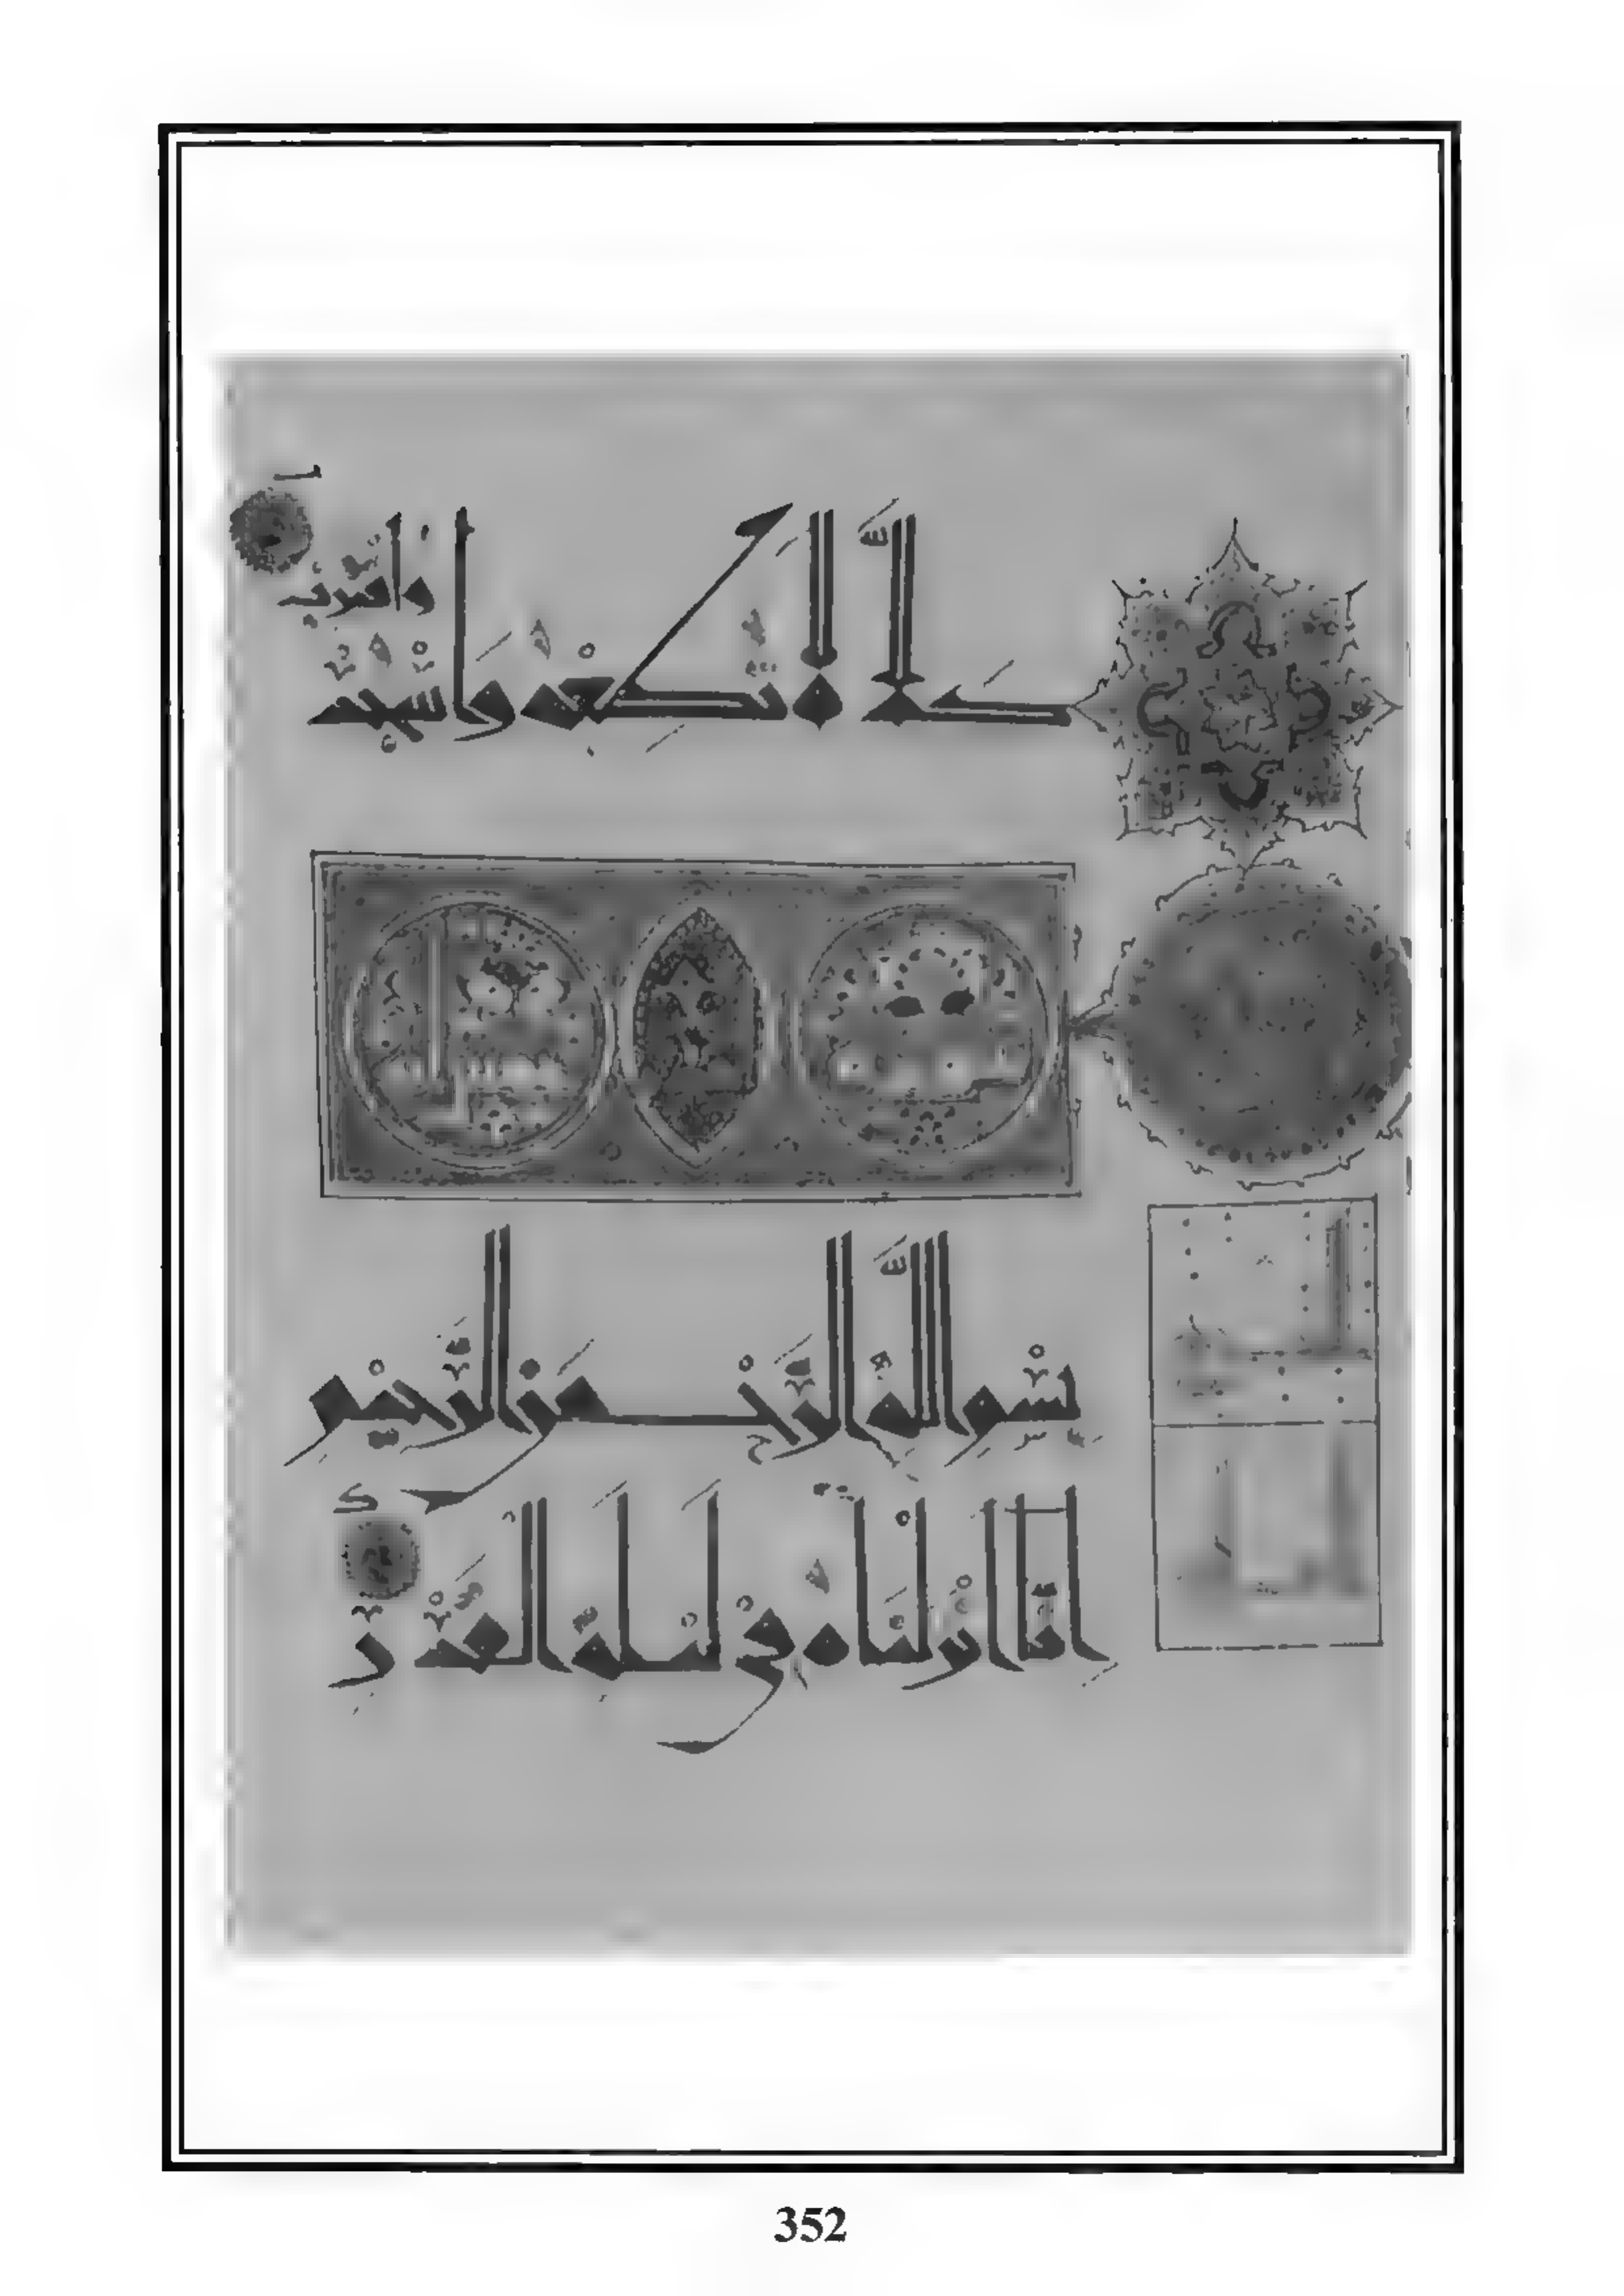 كَلَّا لَا تُطِعْهُ وَاسْجُدْ وَاقْتَرِبْ
بِسْمِ اللَّهِ الرَّحْمَٰنِ الرَّحِيمِ
إِنَّا أَنْزَلْنَاهُ فِي لَيْلَةِ الْقَدْرِ
352